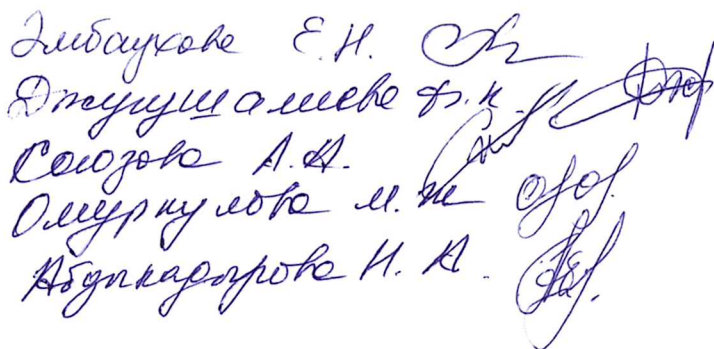 Эмбаухова Е.Н.
Джумушалиева Ф.К.
Союзова А.А.
Омуркулова М.Ж
Абдыкадырова Н.А.